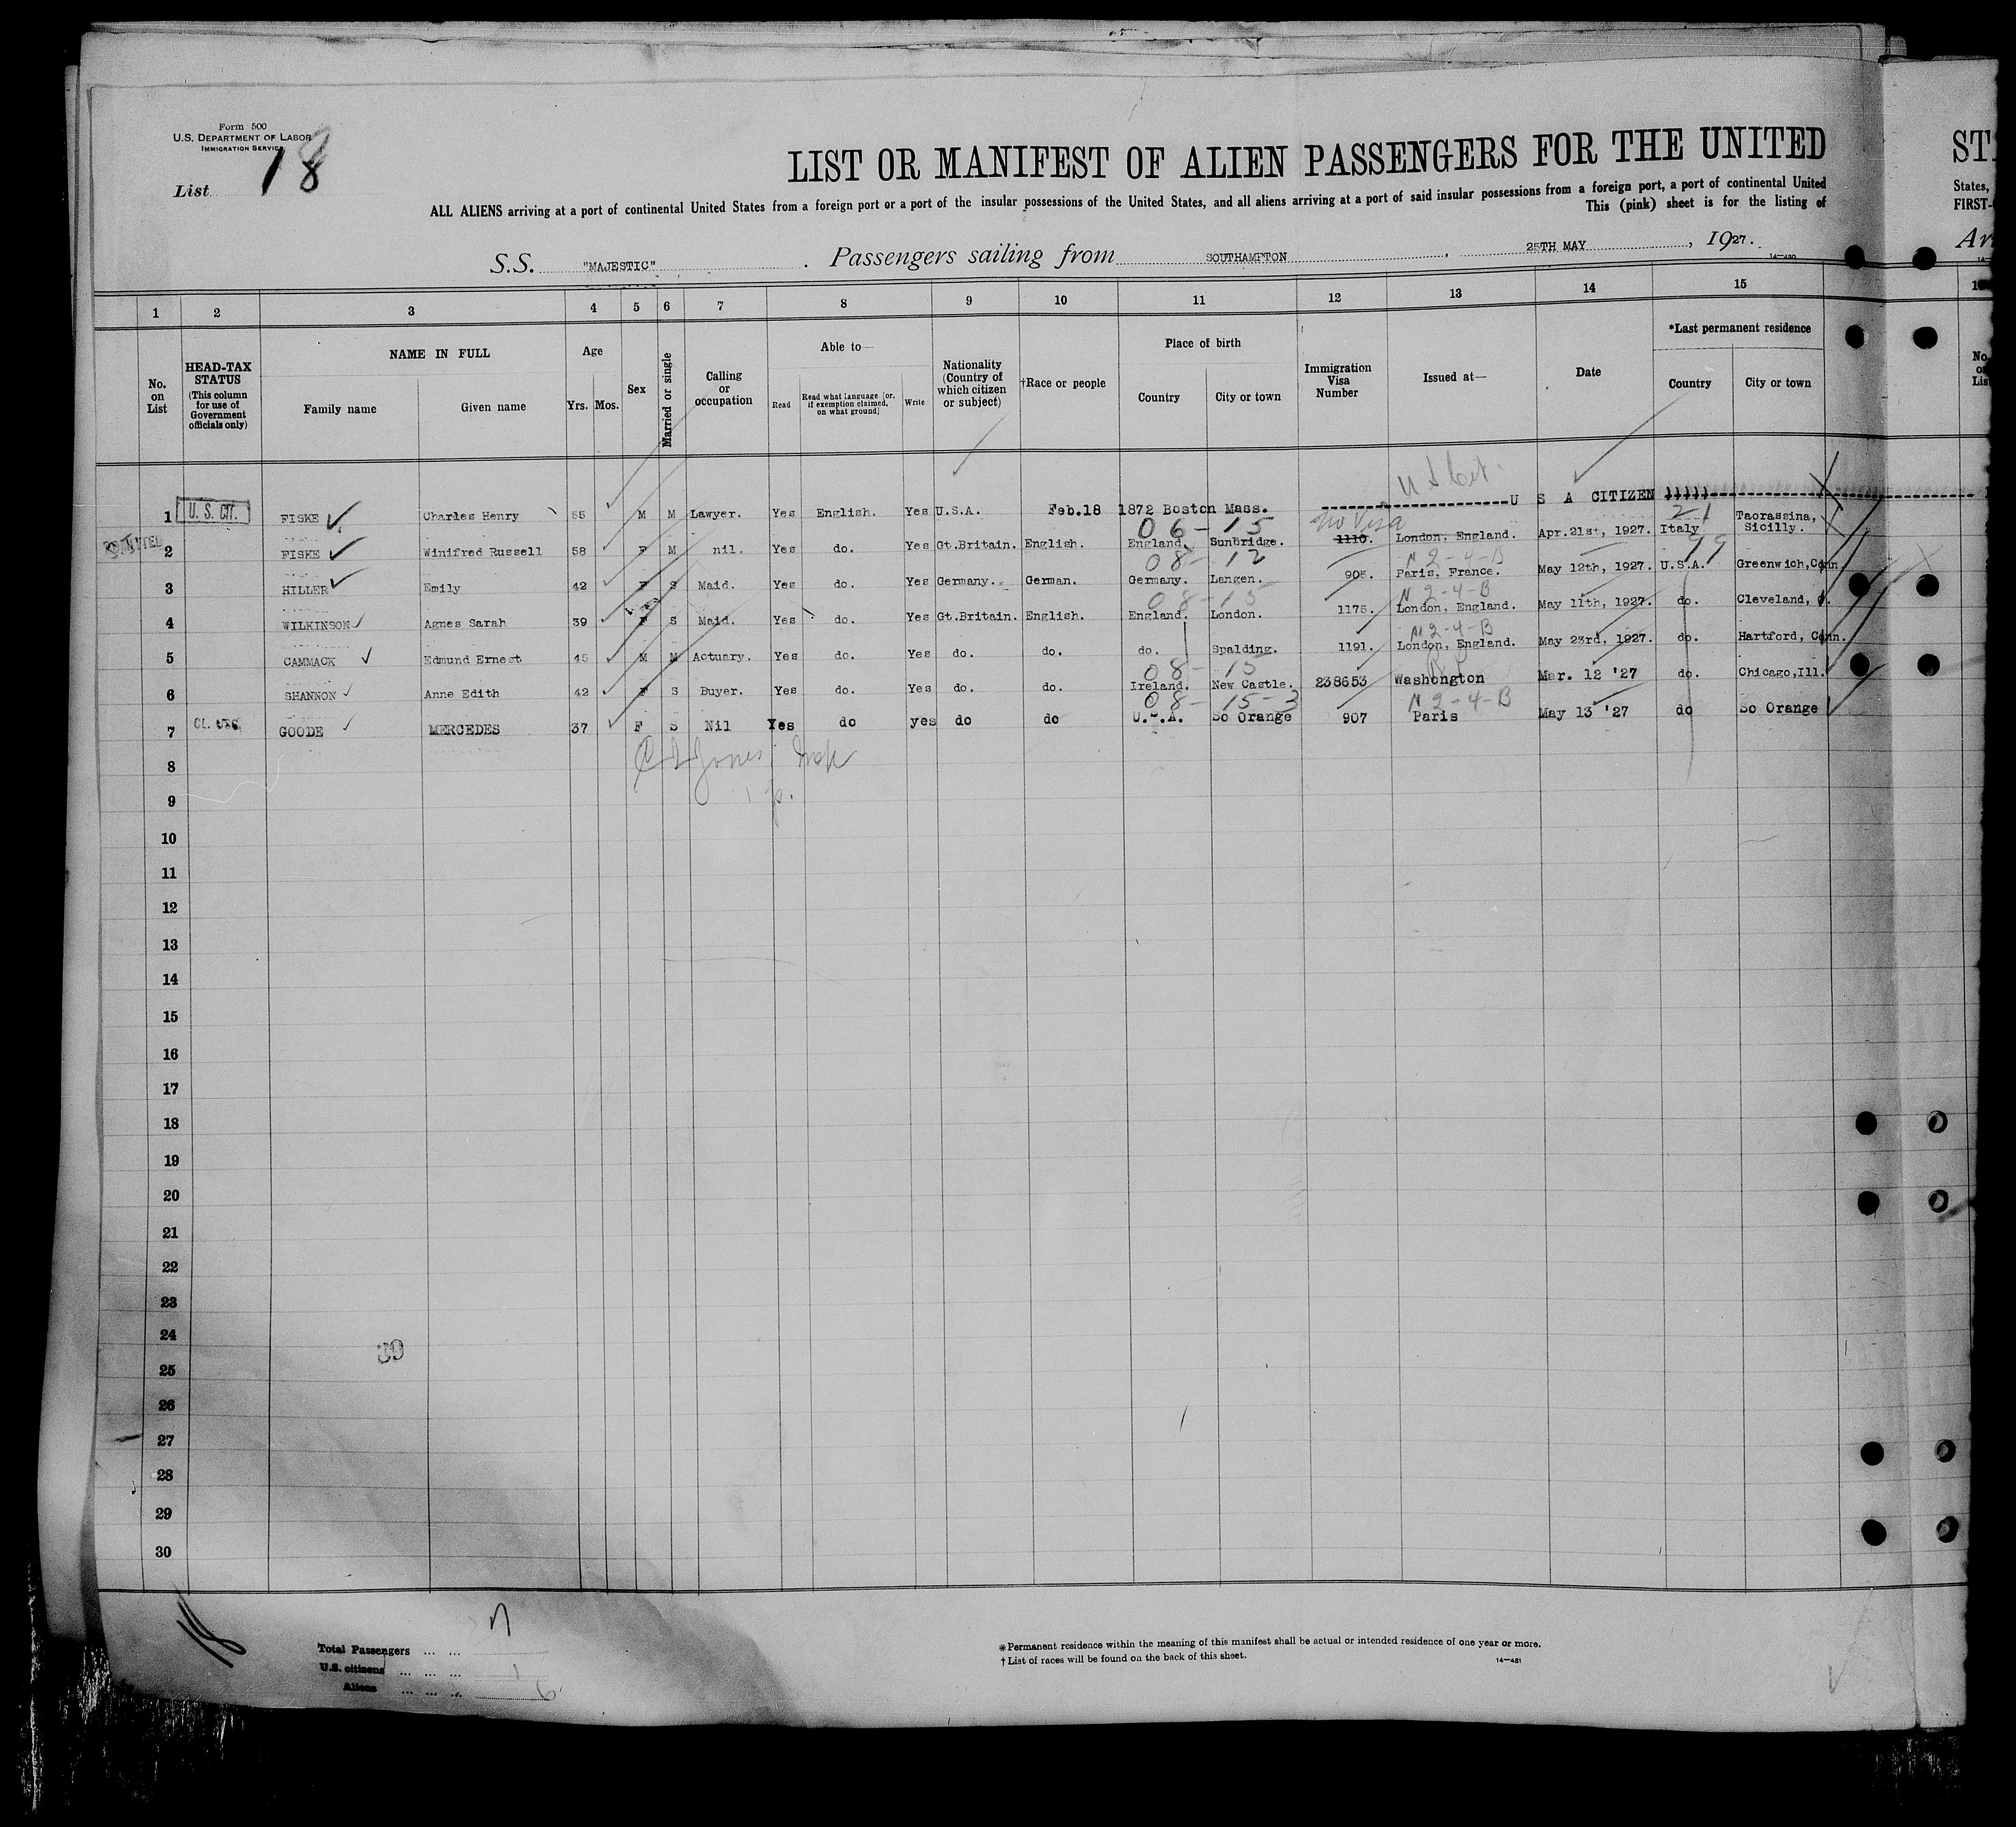 Form 500
U.S. DEPARTMENT OF LABOR
IMMIGRATION SERVICE
List 18
LIST OR MANIFEST OF ALIEN PASSENGERS FOR THE UNITED
ALL ALIENS arriving at a port of continental United States from a foreign port or a port of the insular possessions of the United States, and all aliens arriving at a port of said insular possessions from a foreign port, a port of continental United
This (pink) sheet is for the listing of
S.S. "MAJESTIC". Passengers sailing from SOUTHAMPTON, 25TH MAY, 1927.
14—480
ST
States,
FIRST-
Ar
1 2 3 4 5 6 7 8 9 10 11 12 13 14 15
No. on List
HEAD-TAX STATUS (This column for use of Government officials only)
NAME IN FULL
Family name Given name
Age
Yrs. Mos.
Sex
Married or single
Calling or occupation
Able to—
Read Read what language [or, if exemption claimed, on what ground] Write
Nationality (Country of which citizen or subject)
†Race or people
Place of birth
Country City or town
Immigration Visa Number
Issued at—
Date
*Last permanent residence
Country City or town
1 U.S. CIT. FISKE Charles Henry 55 M M Lawyer. Yes English. Yes U.S.A. Feb.18 1872 Boston Mass. U S A CITIZEN
06-15 No Visa 21
2 FISKE Winifred Russell 58 F M nil. Yes do. Yes Gt.Britain. English. England. Sunbridge. 1110. London, England. Apr.21st, 1927. Italy Taorassina, Sicilly.
08-12 N 2-4-B 99
3 HILLER Emily 42 F S Maid. Yes do. Yes Germany. German. Germany. Langen. 905. Paris, France. May 12th, 1927. U.S.A. Greenwich,Conn.
08-15 N 2-4-B
4 WILKINSON Agnes Sarah 39 F S Maid. Yes do. Yes Gt.Britain. English. England. London. 1175. London, England. May 11th, 1927. do. Cleveland, O.
N 2-4-B
5 CAMMACK Edmund Ernest 45 M M Actuary. Yes do. Yes do. do. do. Spalding. 1191. London, England. May 23rd, 1927. do. Hartford, Conn.
08-15
6 SHANNON Anne Edith 42 F S Buyer. Yes do. Yes do. do. Ireland. New Castle. 238653 Washongton Mar. 12 '27 do. Chicago,Ill.
08-15-3 N 2-4-B
7 GOODE MERCEDES 37 F S Nil Yes do yes do do U.S.A. So Orange 907 Paris May 13 '27 do So Orange
Jones Insp
8
9
10
11
12
13
14
15
16
17
18
19
20
21
22
23
24
25
26
27
28
29
30
39
18
Total Passengers ... ... 7
U.S. citizens ... ... ... 1
Aliens ... ... ... 6
*Permanent residence within the meaning of this manifest shall be actual or intended residence of one year or more.
†List of races will be found on the back of this sheet.
14—481